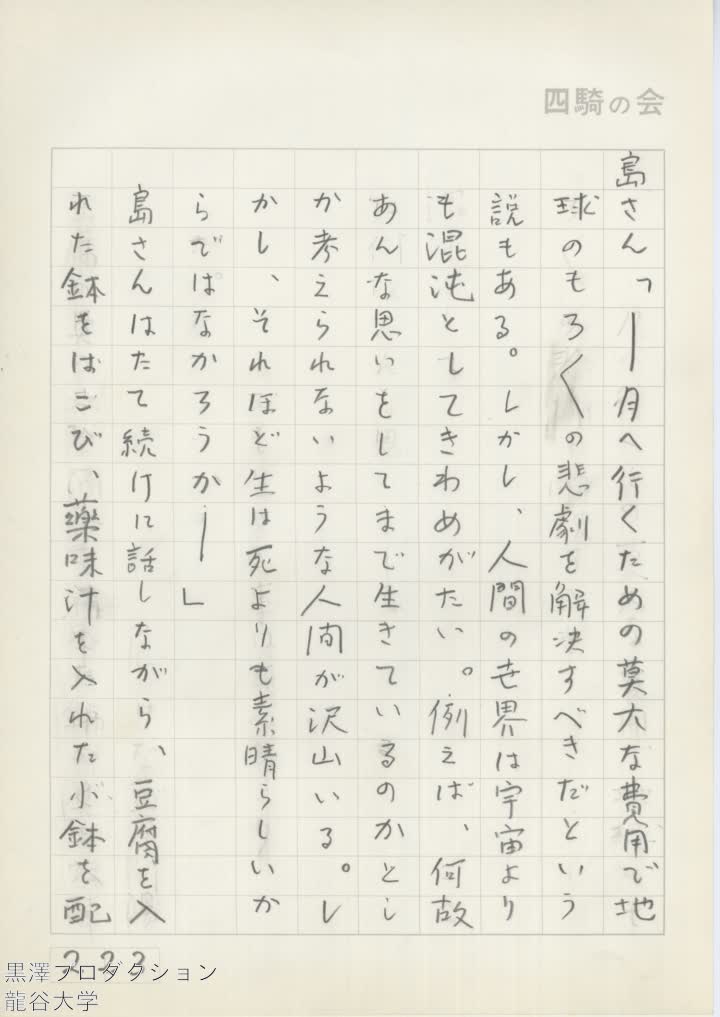 四騎の会
島さん「―月へ行くための莫大な費用で地
球のもろ〱の悲劇を解決すべきだという
説もある。しかし、人間の世界は宇宙より
も混沌としてきわめがたい。例えば、何故
あんな思いをしてまで生きているのかとし
か考えられないような人间が沢山いる。し
かし、それほど生は死よりも素晴らしいか
らではなかろうか―」
島さんはたて続けに話しながら、豆腐を入
れた鉢をはこび、薬味汁を入れた小鉢を配
223
黒澤プロダクション
龍谷大学